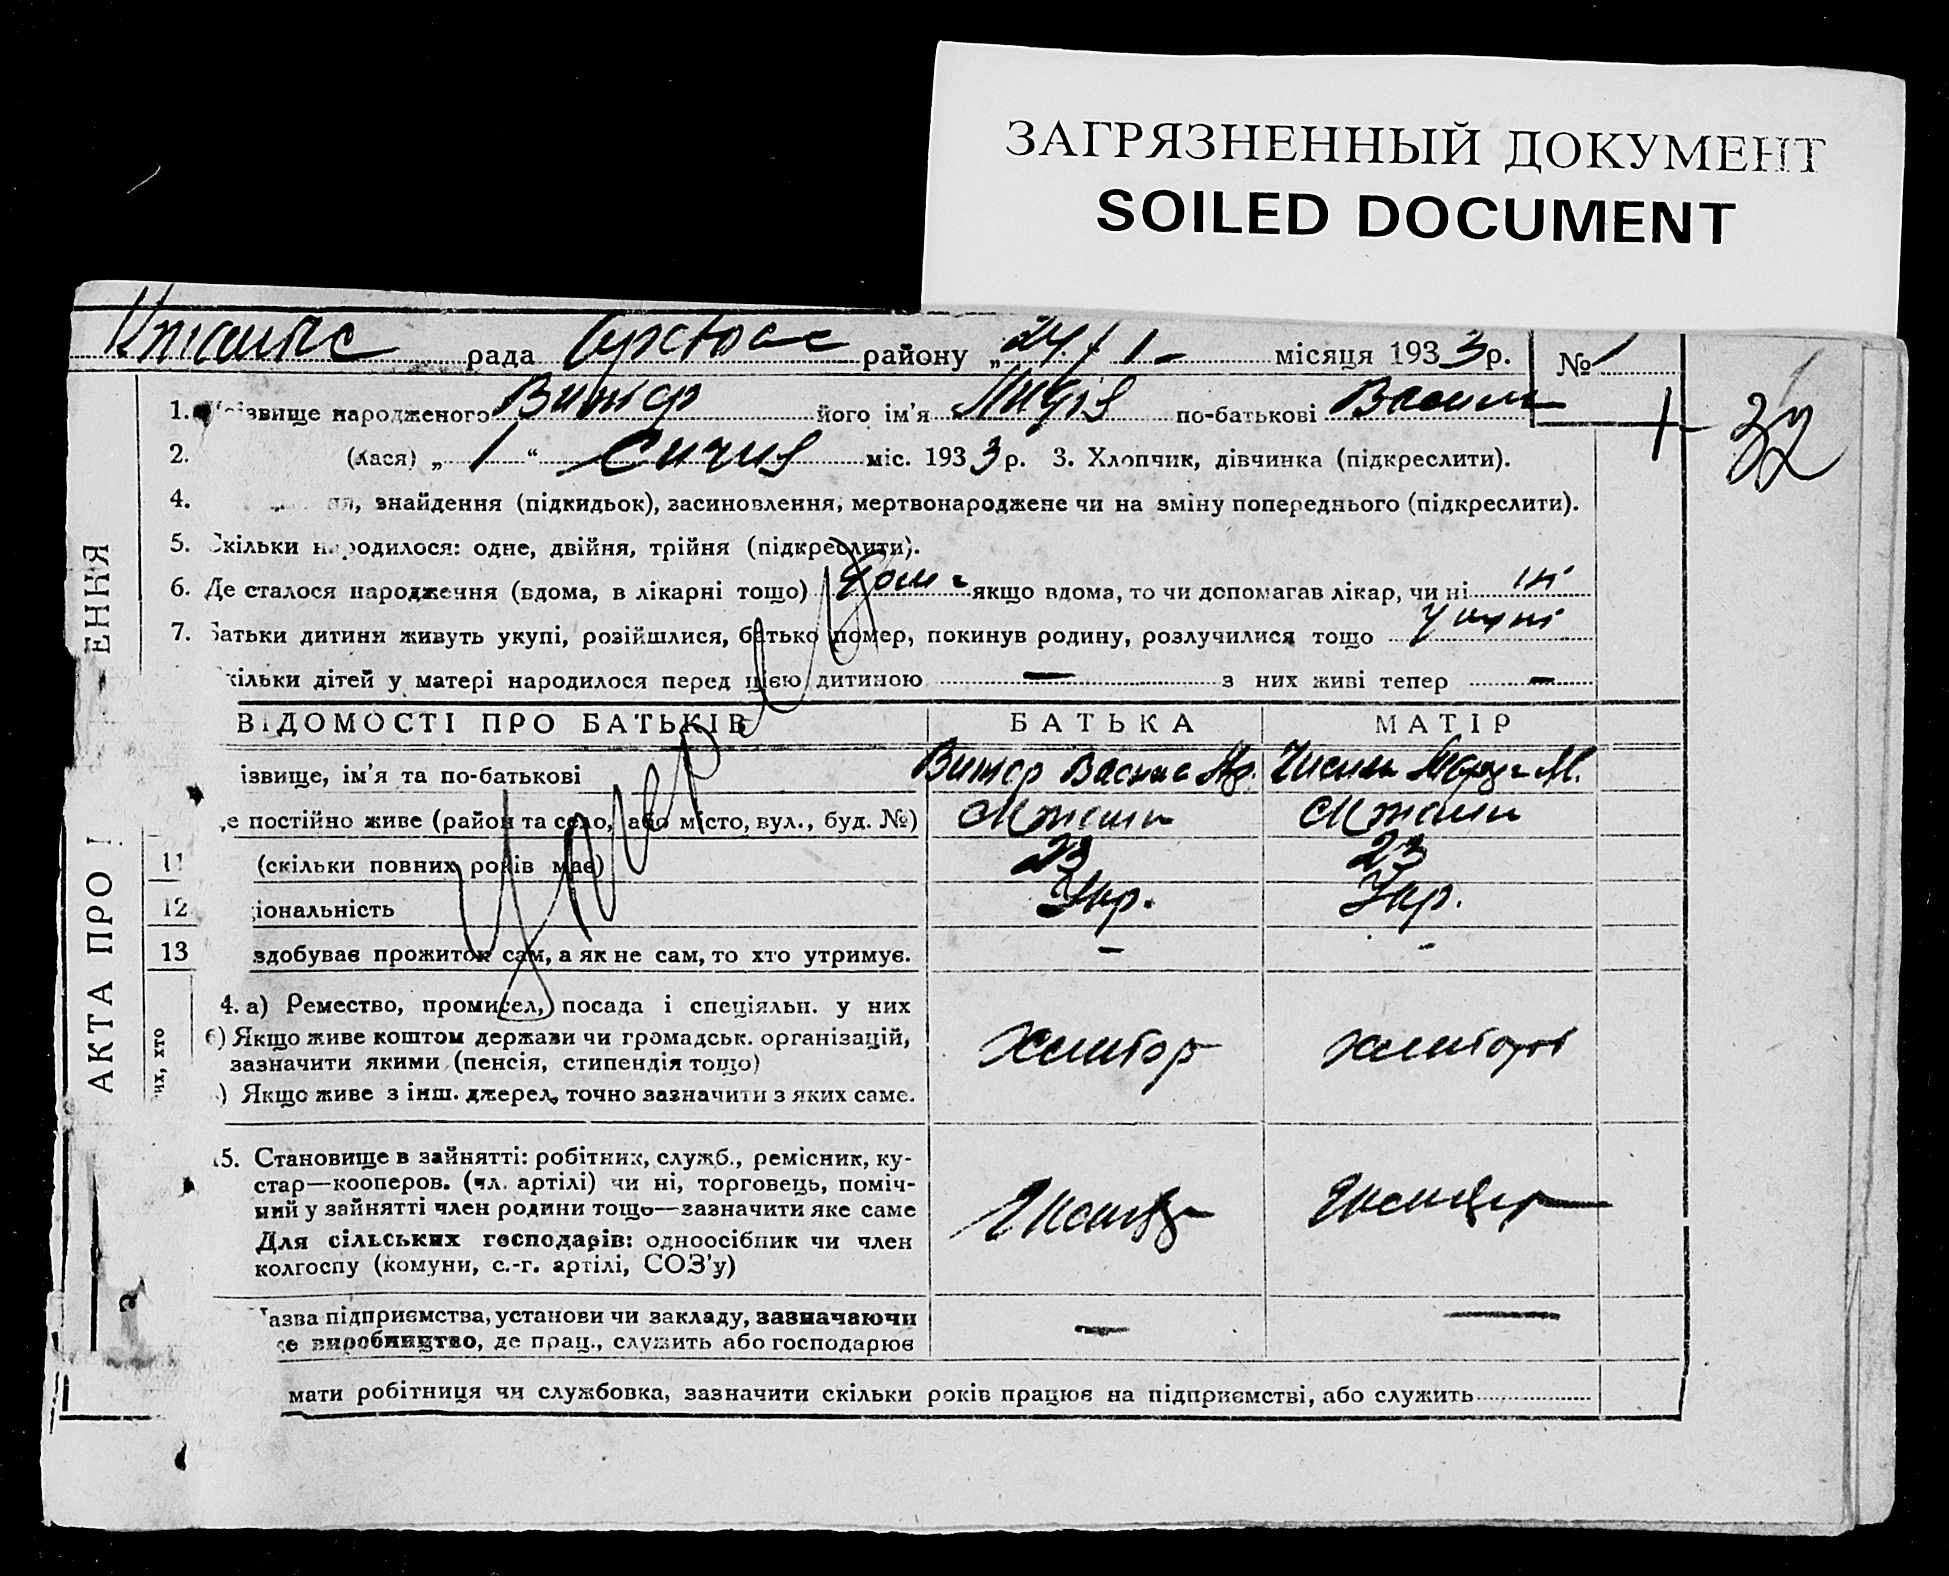 ЗАГРЯЗНЕННЫЙ ДОКУМЕНТ
SOILED DOCUMENT
рада району „24 / 1 - місяця 1933 р. № 1
1. ізвище народженого його ім'я Лидія по-батькові Васил
32
2. (лася) „ 1 “ Січня міс. 1933 р. 3. Хлопчик, дівчинка (підкреслити).
4. знайдення (підкидьок), засиновлення, мертвонароджене чи на зміну попереднього (підкреслити).
5. Скільки народилося: одне, двійня, трійня (підкреслити).
6. Де сталося народження (вдома, в лікарні тощо) дома якщо вдома, то чи допомагав лікар, чи ні ні
7. Батьки дитини живуть укупі, розійшлися, батько помер, покинув родину, розлучилися тощо укупі
кільки дітей у матері народилося перед цією дитиною — з них живі тепер —
ВІДОМОСТІ ПРО БАТЬКІВ БАТЬКА МАТІР
ізвище, ім'я та по-батькові
е постійно живе (район та село, або місто, вул., буд. №)
11 (скільки повних років має) 23 23
12 іональність Укр. Укр.
13 здобував прожиток сам, а як не сам, то хто утримує. — -
4. а) Ремество, промисел, посада і спеціяльн. у них
б) Якщо живе коштом держави чи громадськ. організацій,
зазначити якими (пенсія, стипендія тощо)
) Якщо живе з інш. джерел, точно зазначити з яких саме.
5. Становище в зайнятті: робітник, служб., ремісник, ку-
стар—кооперов. (чл. артілі) чи ні, торговець, поміч-
ний у зайнятті член родини тощо—зазначити яке саме
Для сільських господарів: одноосібник чи член
колгоспу (комуни, с.-г. артілі, СОЗ'у)
азва підприємства, установи чи закладу, зазначаючи
е виробництво, де прац., служить або господарює — —
мати робітниця чи службовка, зазначити скільки років працює на підприємстві, або служить
АКТА ПРО
ЕННЯ
их, хто